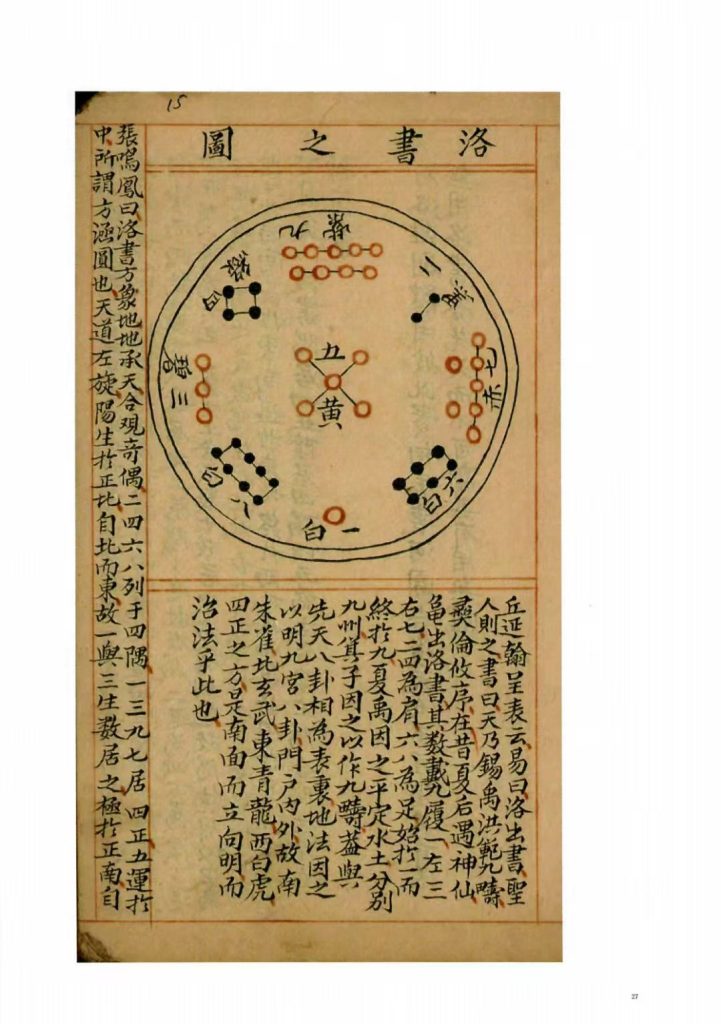 15
洛書之圖
九紫
二黃
七赤
六白
一白
八白
三碧
四綠
五黃
丘延翰呈表云易曰洛出書聖
人則之書曰天乃錫禹洪範九疇
彞倫攸序在昔夏后遇神仙
龜出洛書其數戴九履一左三
右七二四為肩六八為足始於一而
終於九夏禹因之平定水土分別
九州箕子因之以作九疇葢與
先天八卦相為表裏地法因之
以明九宮八卦門戶內外故南
朱雀北玄武東青龍西白虎
四正之方是南面而立向明而
治法乎此也
張鳴鳳曰洛書方象地地承天合观奇偶二四六八列于四隅一三九七居四正五運於
中所謂方涵圓也天道左旋陽生於正北自北而東故一與三生数居之極於正南自
27